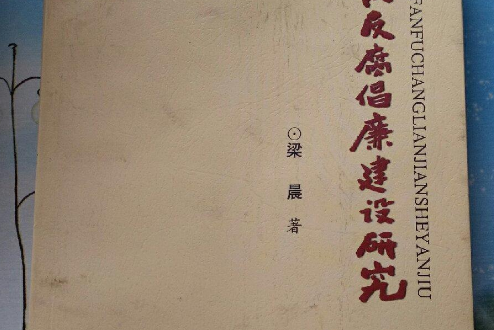 反腐倡廉建设研究
FANFUCHANGLIANJIANSHEYANJIU
⊙梁晨 著